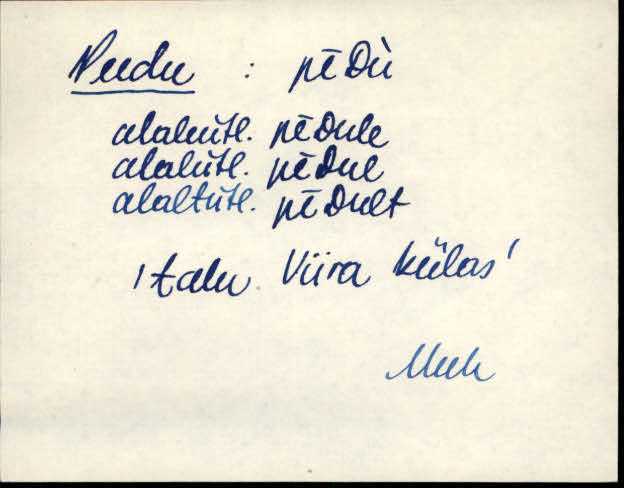 Peedu : pēDù
alaleütl. pēDule
alalütl. pēDul
alaltütl. pēDult
'talu Viira külas'
Muh